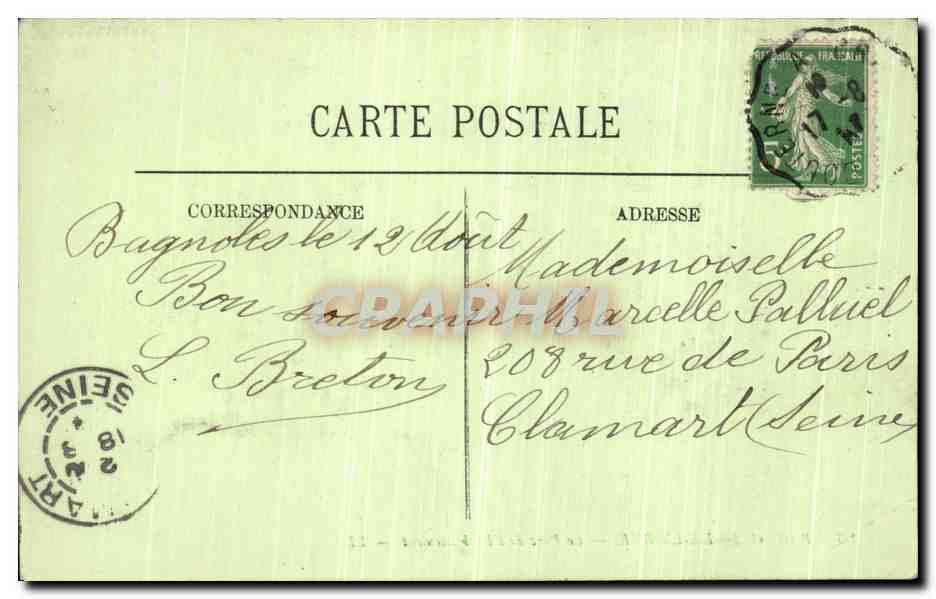 CARTE POSTALE
REPUBLIQUE FRANCAISE
POSTES
17 -8
CORRESPONDANCE
Bagnoles le 12 Août
Bon souvenir
L. Breton
ADRESSE
Mademoiselle
Marcelle Palluel
208 rue de Paris
Clamart (Seine)
CPAPHIL
MART SEINE
18